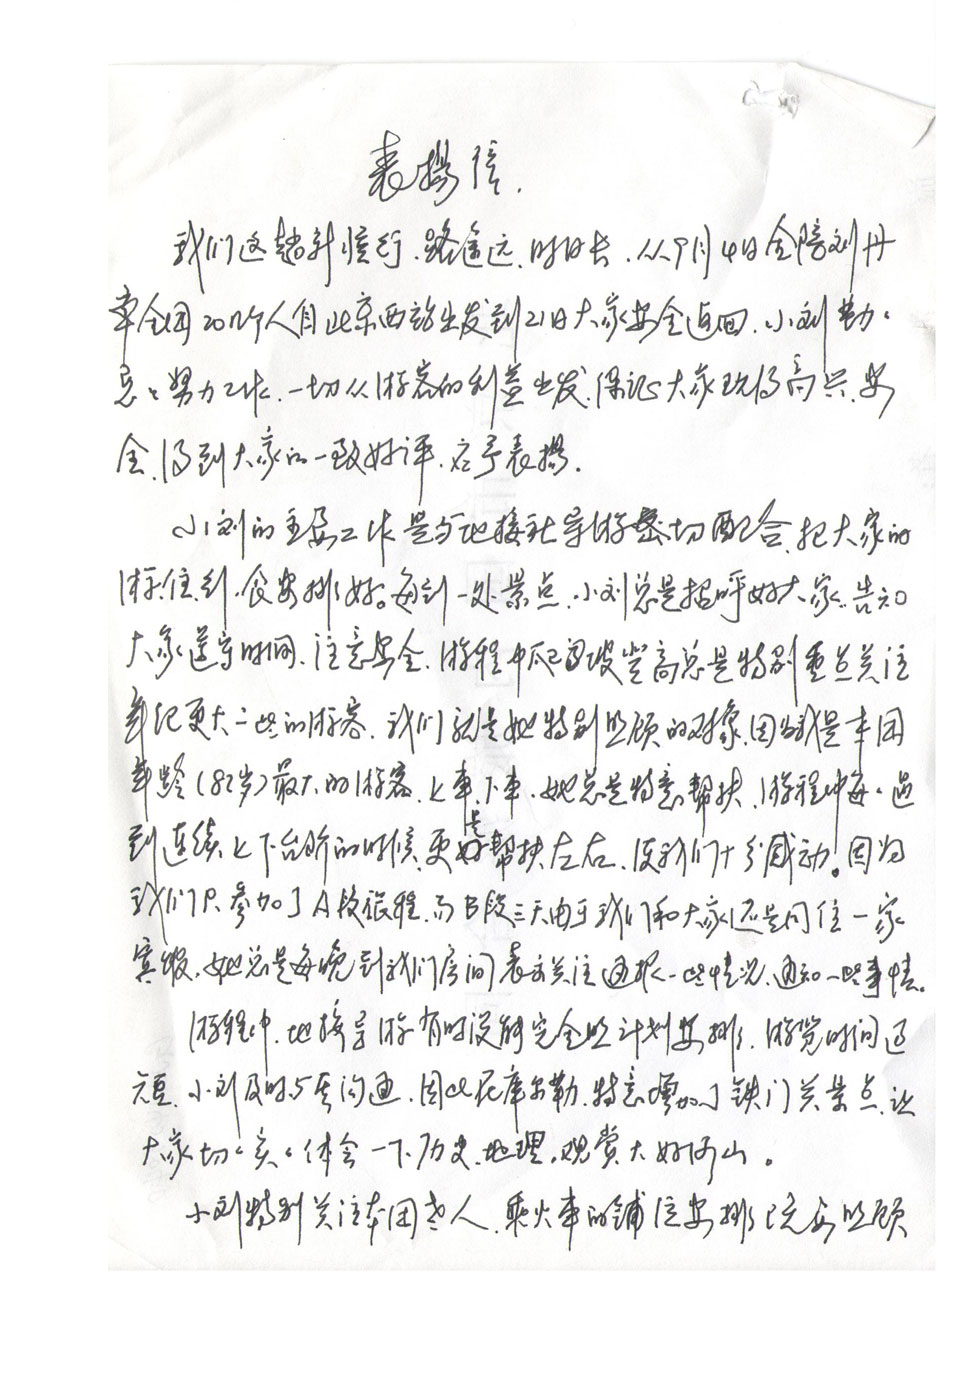 表揚信.
我们这趟新疆行,路途远,时日长,从9月4日全陪刘丹
率全团20几个人自北京西站出发到21日大家安全返回,小刘勤々
恳々努力工作,一切从游客的利益出发,保证大家玩得高兴、安
全,得到大家的一致好评,应予表揚.
小刘的主要工作是与地接社导游密切配合,把大家的
游、住、行、食安排好。每到一处景点,小刘总是招呼好大家,告知
大家遵守时间,注意安全,游程中爬山坡登高总是特别重点关注
年纪更大一些的游客,我们就是她特别照顾的对象,因为我是本团
年龄(82岁)最大的游客,上車,下車,她总是特意帮扶,游程中每々遇
到连续上下台阶的时候,更是帮扶左右,使我们十分感动。因为
我们只参加了A段旅程,而B段三天由于我们和大家还是同住一家
宾馆,她总是每晚到我们房间表示关注通报一些情况,通知一些事情。
游程中,地接导游有时没能完全照计划安排,游览时间过
短,小刘及时与其沟通,因此在库尔勒,特意增加了铁门关景点,让
大家切々实々体会一下历史、地理,观赏大好河山。
小刘特别关注本团老人,乘火車的铺位安排已完女照顾